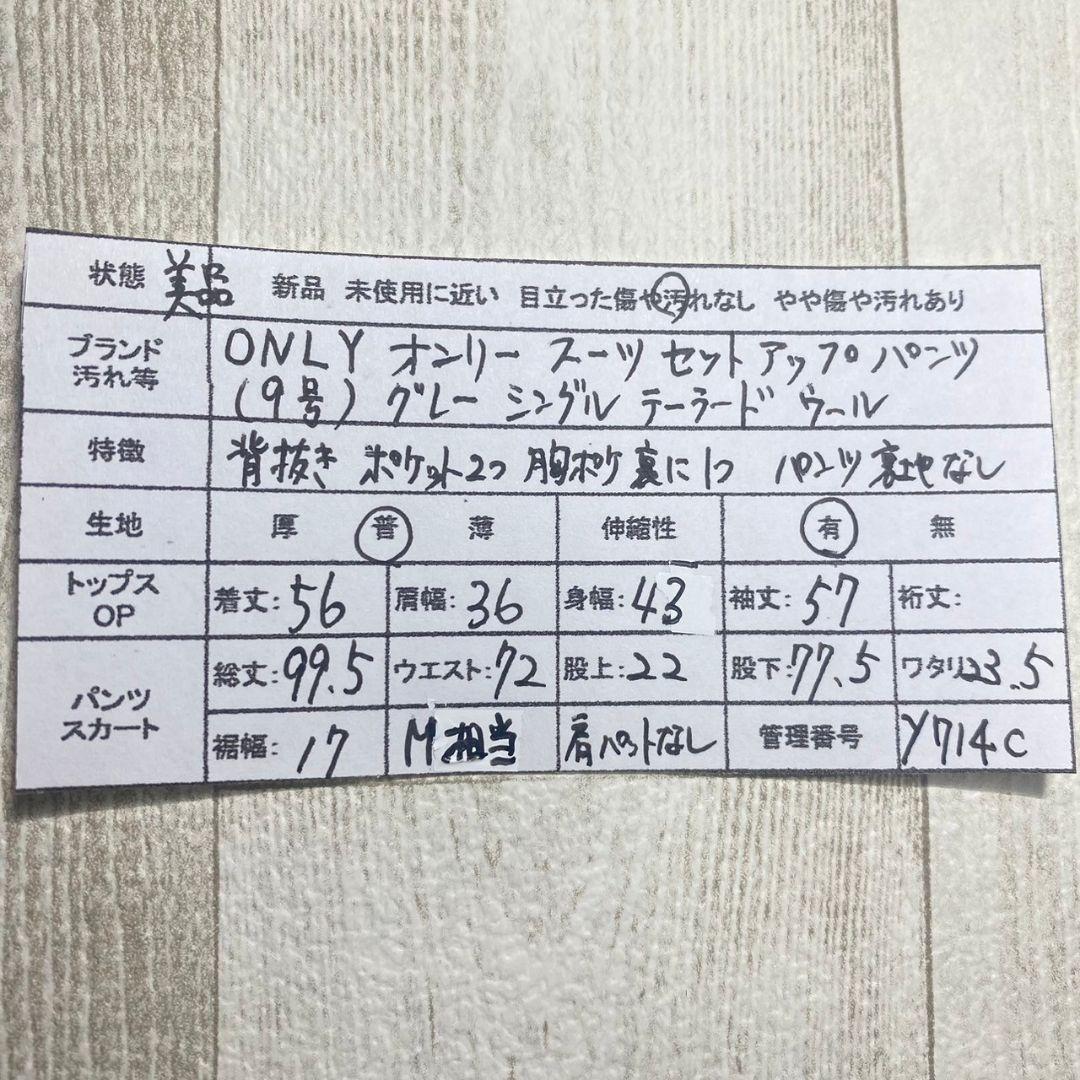 状態 美品 新品 未使用に近い 目立った傷や汚れなし やや傷や汚れあり
ブランド 汚れ等
ONLY オンリー スーツ セットアップ パンツ
(9号) グレー シングル テーラード ウール
特徴 背抜き ポケット2つ 胸ポケ 裏に1つ パンツ 裏地なし
生地 厚 普 薄 伸縮性 有 無
トップス OP
着丈:56 肩幅:36 身幅:43 袖丈:57 裄丈:
パンツ スカート
総丈:99.5 ウエスト:72 股上:22 股下:77.5 ワタリ:23.5
裾幅:17 M相当 肩パットなし 管理番号 Y714C